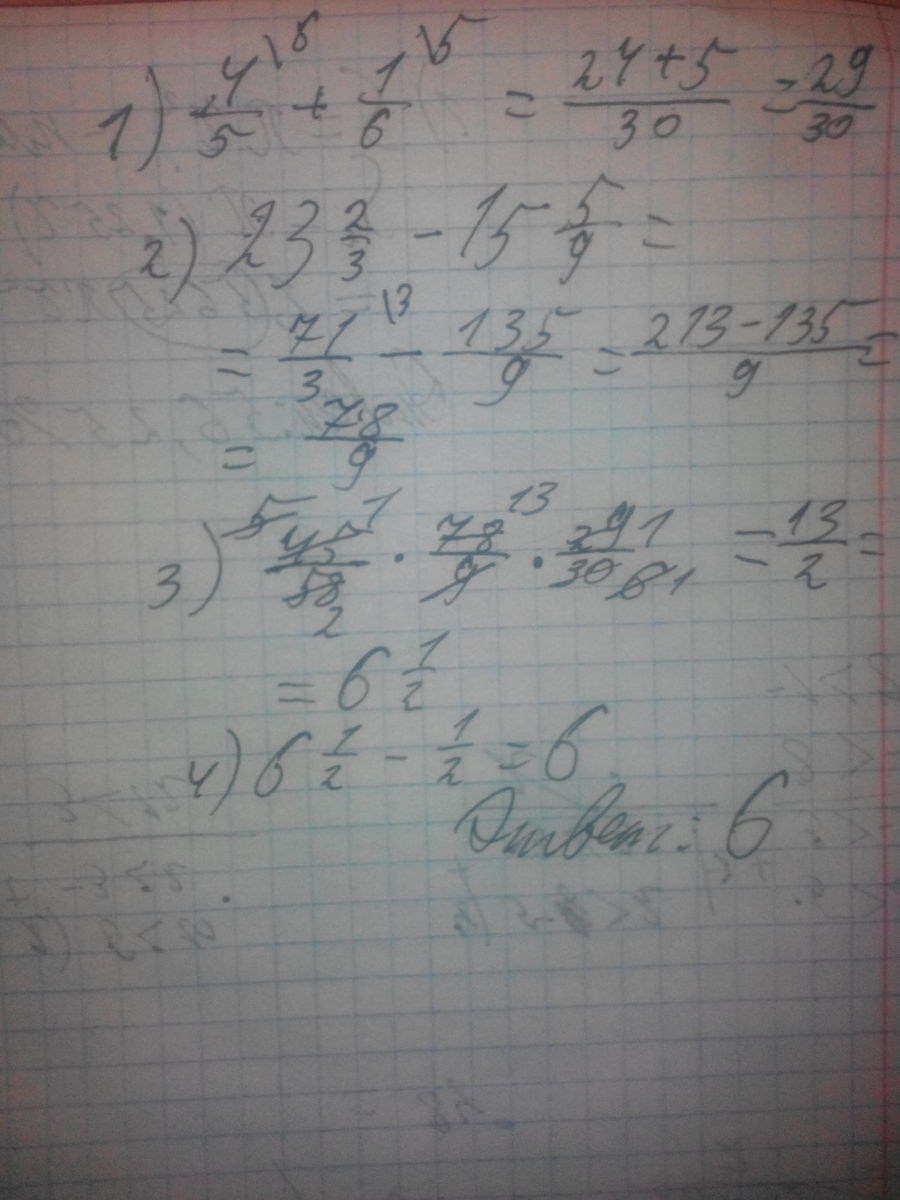 1) 4\6/5 + 1\5/6 = 24+5/30 = 29/30
2) 23 2/3 - 15 5/9 =
= 71\3/3 - 135/9 = 213-135/9 =
= 78/9
3) 5 45 1/58 2 · 78 13/9 · 29 1/30 6 1 = 13/2 =
= 6 1/2
4) 6 1/2 - 1/2 = 6
Ответ: 6